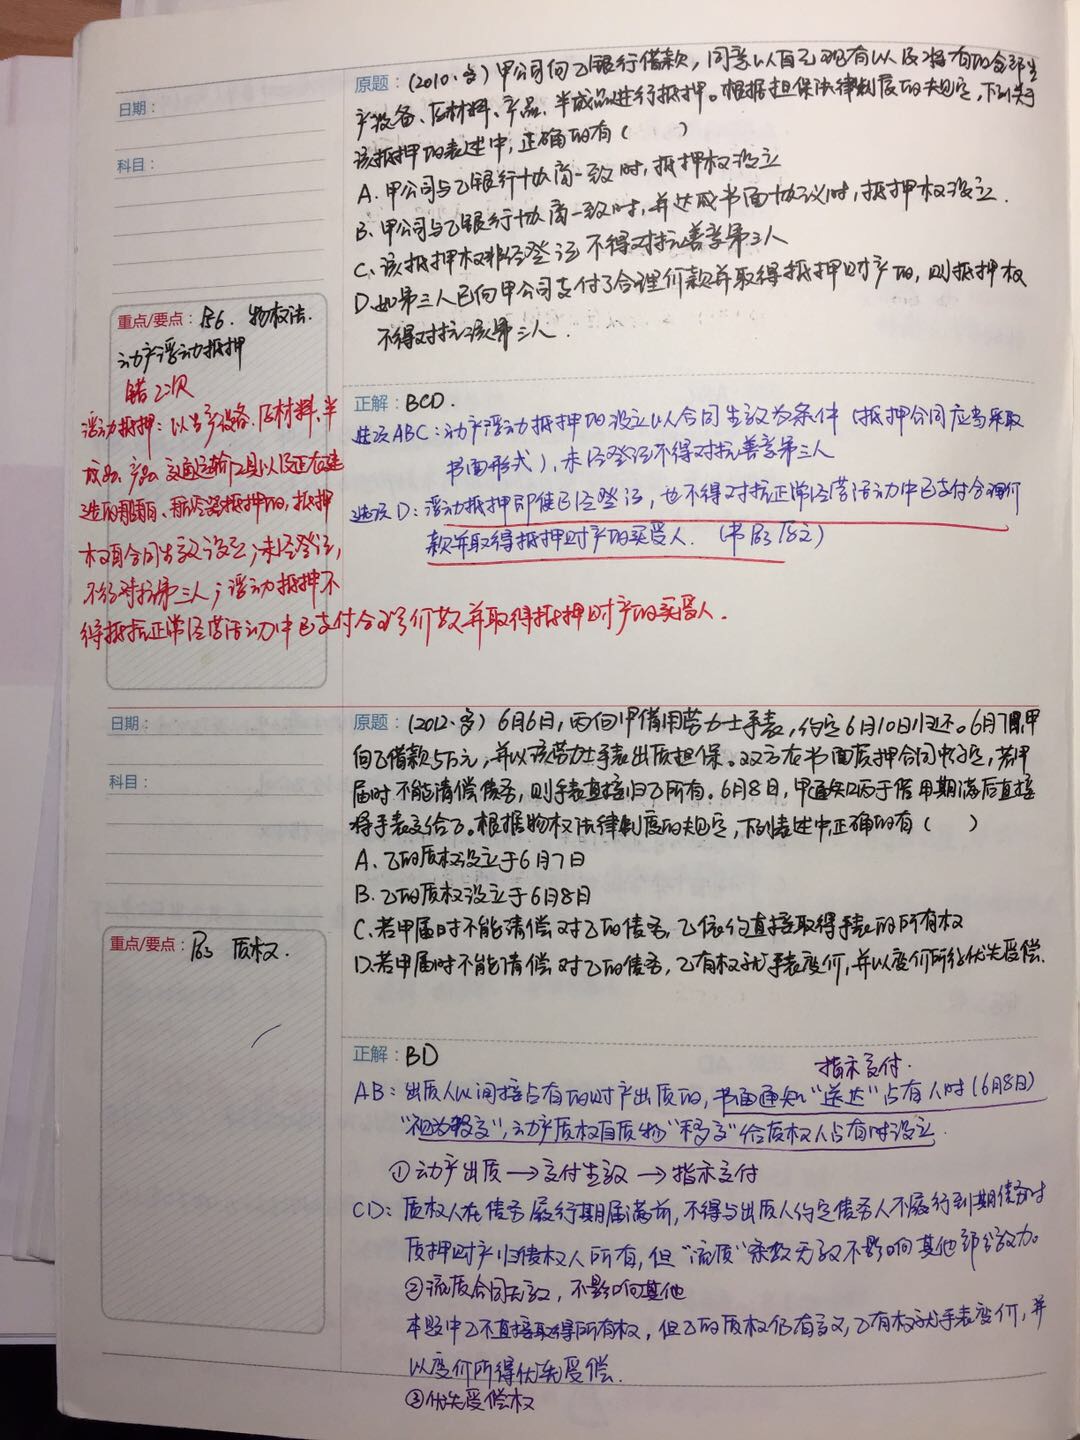 日期：
科目：
原题：(2010·多) 甲公司向乙银行借款，同意以自己现有以及将有的全部生
产设备、原材料、产品、半成品进行抵押。根据担保法律制度的规定，下列关于
该抵押的表述中，正确的有（ ）
A. 甲公司与乙银行协商一致时，抵押权设立
B. 甲公司与乙银行协商一致时，并达成书面协议时，抵押权设立.
C. 该抵押权非经登记 不得对抗善意第三人
D. 如第三人已向甲公司支付了合理价款并取得抵押财产的，则抵押权
不得对抗该第三人.
重点/要点：物权法.
动产浮动抵押
错2次
浮动抵押：以生产设备、原材料、半
成品、产品、交通运输工具以及正在建
造的船舶、航空器抵押的，抵押
权自合同生效设立；未经登记，
不得对抗第三人；浮动抵押不
得抵抗正常经营活动中已支付合理价款并取得抵押财产的买受人.
正解：BCD.
选项ABC：动产浮动抵押的设立以合同生效为条件（抵押合同应当采取
书面形式），未经登记不得对抗善意第三人
选项D：浮动抵押即使已经登记，也不得对抗正常经营活动中已支付合理价
款并取得抵押财产的买受人.
日期：
科目：
原题：(2012·多) 6月6日，丙向甲借用劳力士手表，约定6月10日归还。6月7日，甲
向乙借款5万元，并以该劳力士手表出质担保。双方在书面质押合同中约定，若甲
届时不能清偿债务，则手表直接归乙所有。6月8日，甲通知丙于借用期满后直接
将手表交给乙。根据物权法律制度的规定，下列表述中，正确的有（ ）
A. 乙的质权设立于6月7日
B. 乙的质权设立于6月8日
C. 若甲届时不能清偿对乙的债务，乙依约直接取得手表的所有权
D. 若甲届时不能清偿对乙的债务，乙有权就手表变价，并以变价所得优先受偿.
重点/要点：质权.
正解：BD
指示交付.
AB：出质人以间接占有的财产出质的，书面通知“送达”占有人时（6月8日）
“视为移交”，动产质权自质物“移交”给质权人占有时设立.
①动产出质→交付生效→指示交付
CD：质权人在债务履行期届满前，不得与出质人约定债务人不履行到期债务时
质押财产归债权人所有，但“流质”条款无效不影响其他部分效力。
②流质合同无效，不影响其他
本题中乙不直接取得所有权，但乙的质权仍有效，乙有权就手表变价，并
以变价所得优先受偿.
③优先受偿权